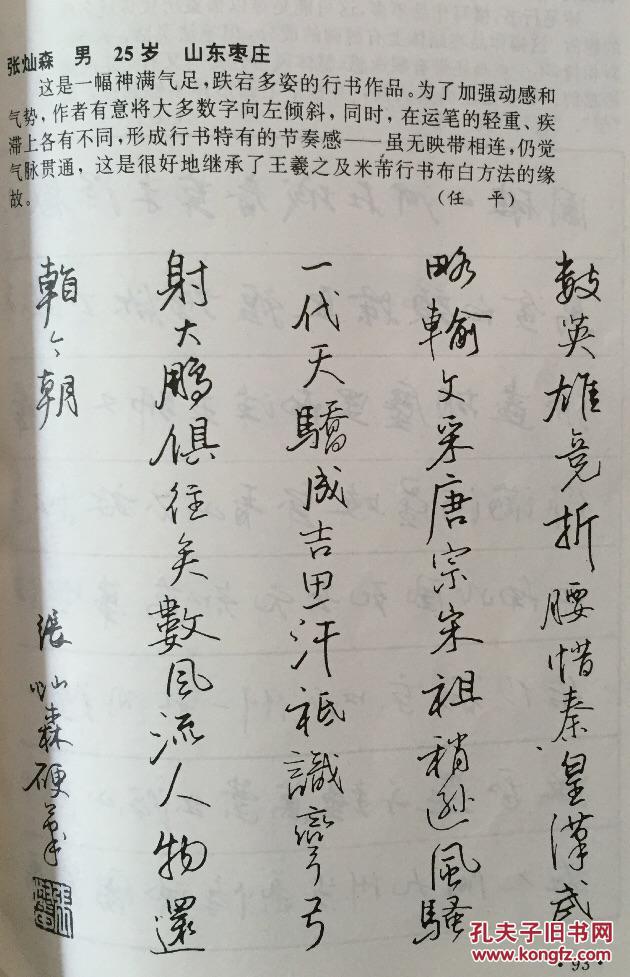 张灿森 男 25岁 山东枣庄
这是一幅神满气足，跌宕多姿的行书作品。为了加强动感和
气势，作者有意将大多数字向左倾斜，同时，在运笔的轻重、疾
滞上各有不同，形成行书特有的节奏感——虽无映带相连，仍觉
气脉贯通，这是很好地继承了王羲之及米芾行书布白方法的缘
故。
（任 平）
數英雄竞折腰惜秦皇漢武
略輸文采唐宗宋祖稍遜風騷
一代天驕成吉思汗祇識彎弓
射大鵰俱往矣數風流人物還
看今朝
張灿森硬筆
孔夫子旧书网
·93·